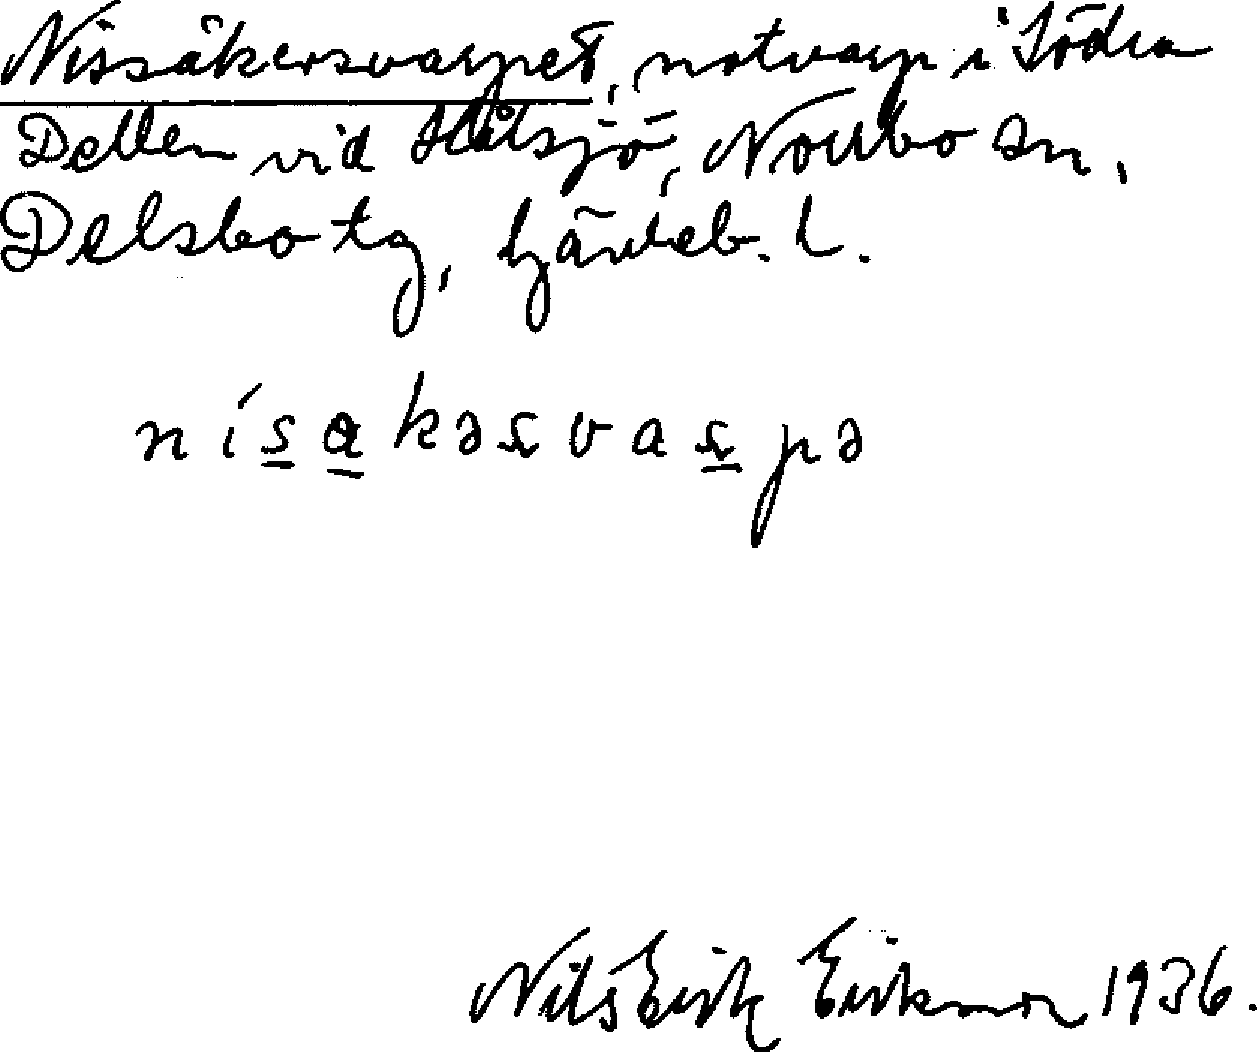 Nissåkersvarpet, notvarp i Södra
Dellen vid Håtsjö, Norrbo sn,
Delsbo tg, Gävleb. l.
nísakəsvaṣpə
Nils Erik Eriksson 1936.